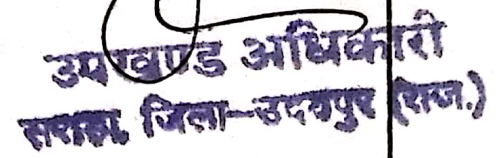 उपखण्ड अधिकारी
सराडा, जिला-उदयपुर (राज.)